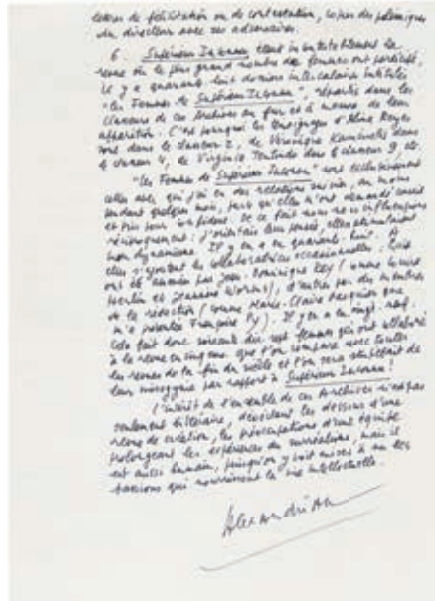 lettres de félicitation ou de contestation, copies des polémiques
du directeur avec ses adversaires.
6. Supérieur Inconnu étant incontestablement la
revue où le plus grand nombre de femmes ont participé,
il y a quarante-huit dossiers intercalaires intitulés
"les Femmes de Supérieur Inconnu", répartis dans les
classeurs de ces Archives au fur et à mesure de leur
apparition. C'est pourquoi les témoignages d'Alina Reyes
sont dans le classeur 2, de Véronique dans
le classeur 4, de Virginie dans le classeur 9, etc.
"Les Femmes de Supérieur Inconnu" sont exclusivement
celles avec qui j'ai eu des relations suivies, au moins
pendant quelques mois, parce qu'elles m'ont demandé conseil
et pris pour confident. De ce fait nous nous influencions
réciproquement: j'orientais leur pensée, elles stimulaient
mon dynamisme. Il y en a eu quarante-huit. A
elles s'ajoutent les collaboratrices occasionnelles. Trois
ont été amenées par Jean-Dominique Rey (comme Louise
Herlin et Jeannine Worms), d'autres par des membres
de la rédaction (comme Marie-Claire que
m'a présentée Françoise Py). Il y en a vingt-neuf.
Cela fait donc soixante-dix-sept femmes qui ont collaboré
à la revue en cinq ans. Que l'on compare avec toutes
les revues de la fin du siècle et l'on sera stupéfait de
leur misogynie par rapport à Supérieur Inconnu!
L'intérêt de l'ensemble de ces Archives n'est pas
seulement littéraire, dévoilant les dessous d'une
revue de création, les préoccupations d'une équipe
prolongeant les expériences du surréalisme, mais il
est aussi humain, puisqu'on y voit mises à nu les
passions qui nourrissent la vie intellectuelle.
Alexandrian